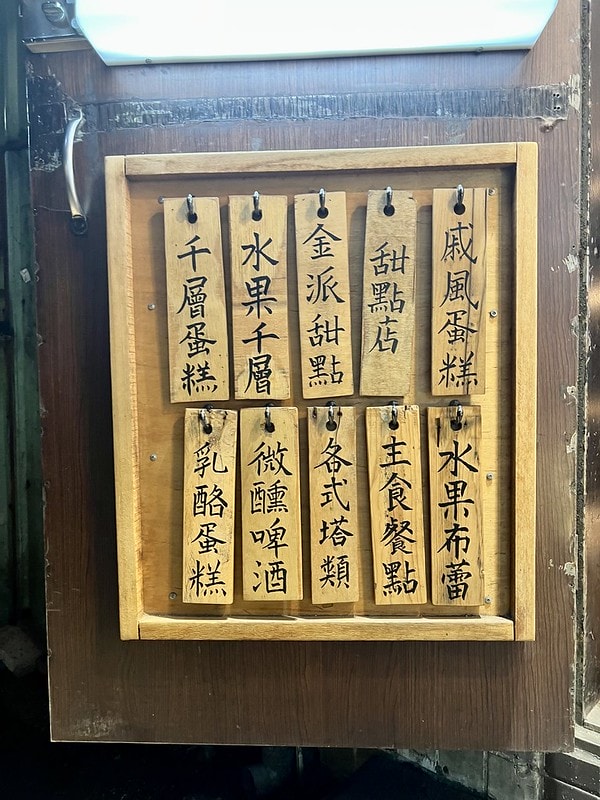 戚風蛋糕
甜點店
金派甜點
水果千層
千層蛋糕
水果布蕾
主食餐點
各式塔類
微醺啤酒
乳酪蛋糕